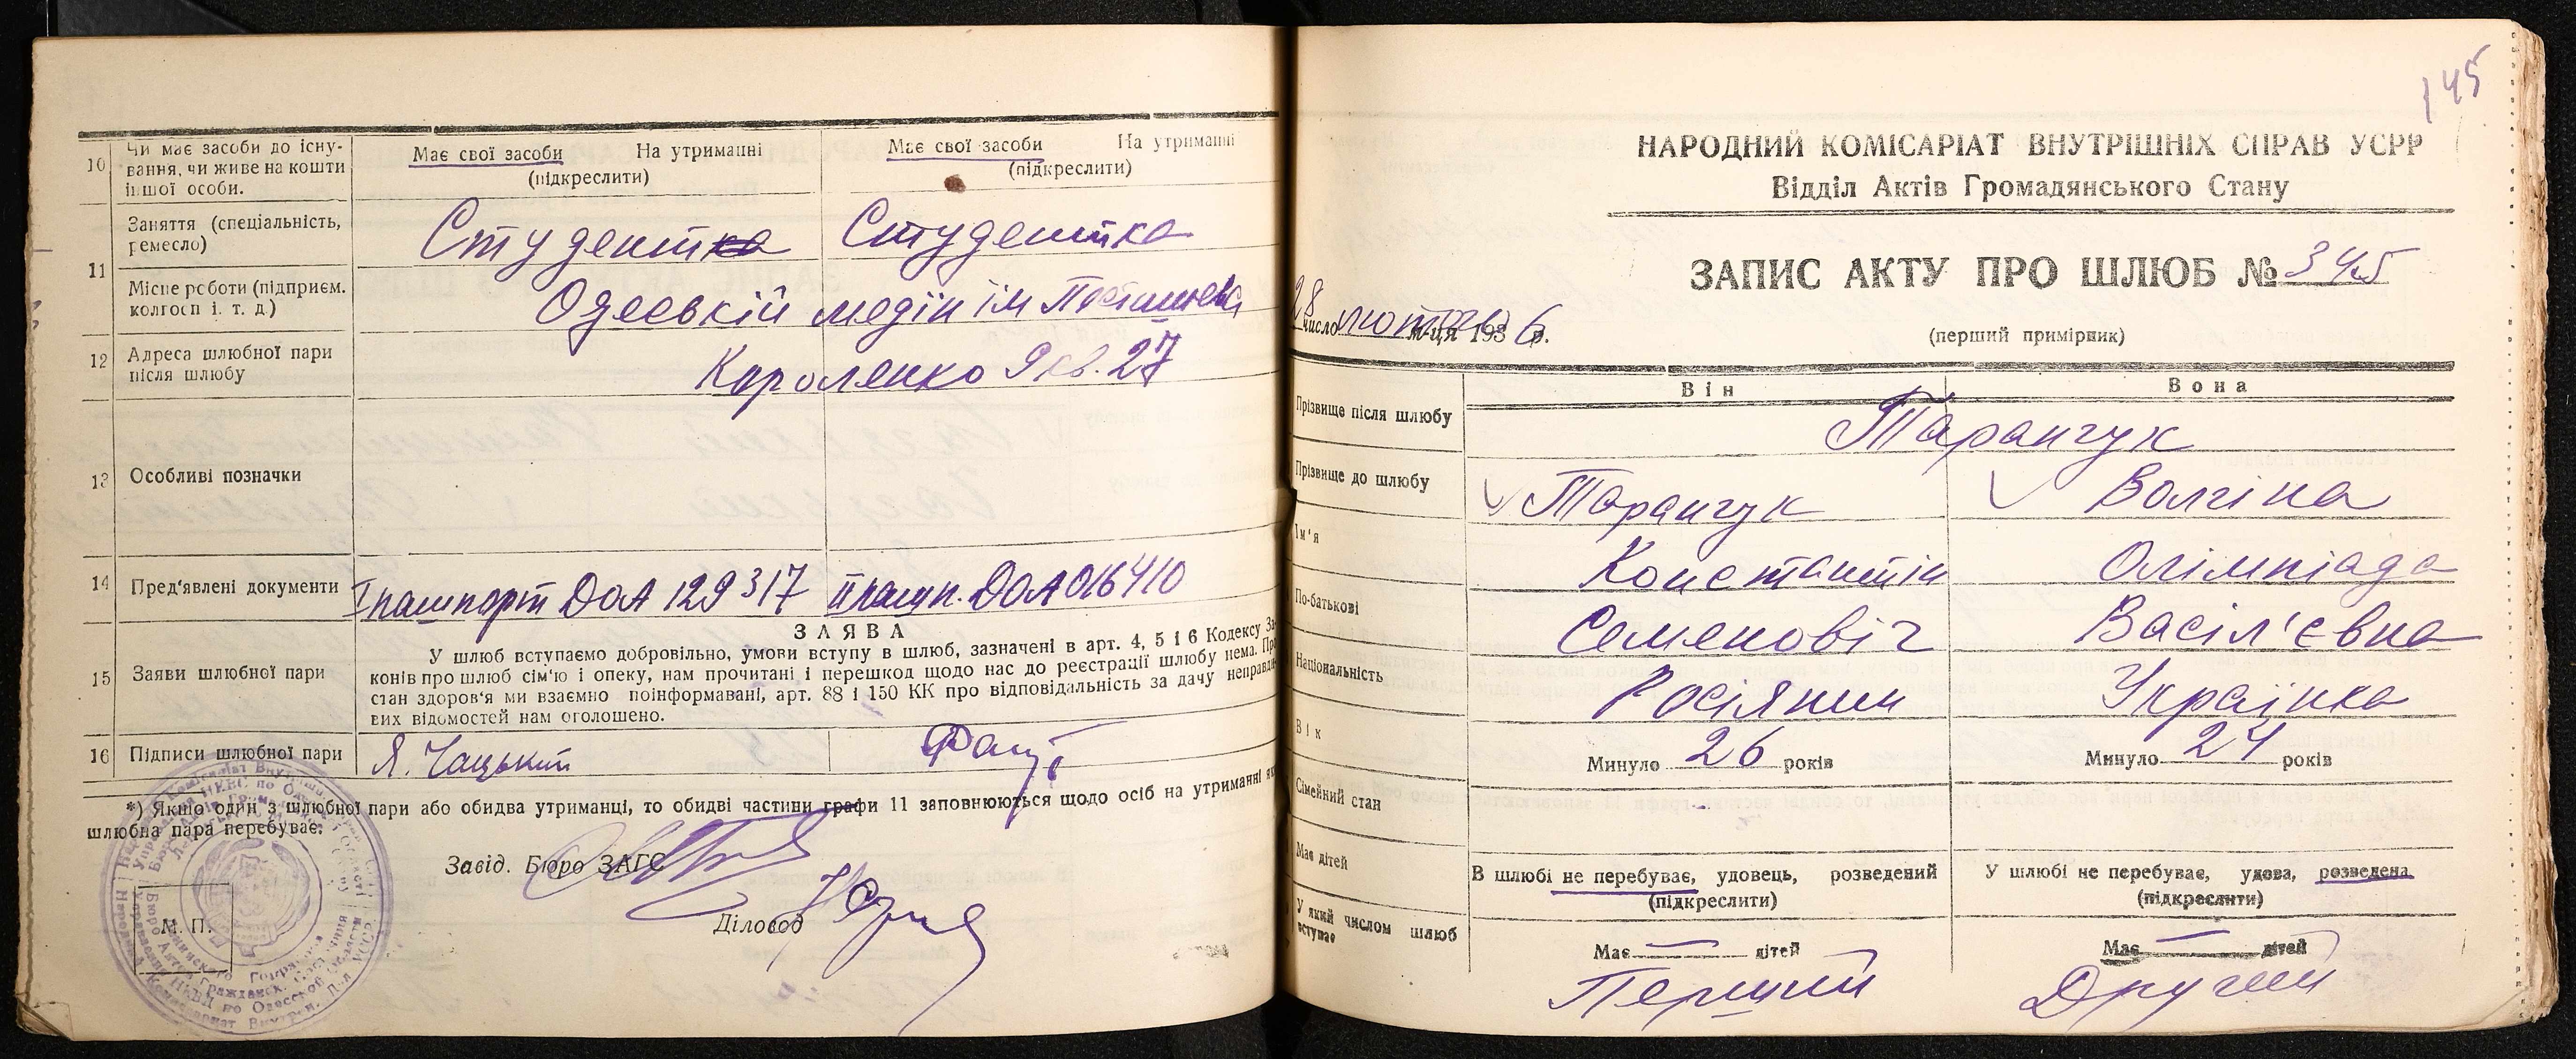 10 Чи має засоби до існу-
вання, чи живе на кошти
іншої особи.
Має свої засоби На утриманні
(підкреслити)
Має свої засоби На утриманні
(підкреслити)
11 Заняття (спеціальність,
ремесло)
Студентка
Студентка
Місце роботи (підприєм.
колгосп і. т. д.)
Одеській медін ім Постишева
12 Адреса шлюбної пари
після шлюбу
Короленко 9 кв. 27
13 Особливі позначки
14 Пред'явлені документи
I пашпорт ДОА 129317 II пашп. ДОА 016410
15 Заяви шлюбної пари
ЗАЯВА
У шлюб вступаємо добровільно, умови вступу в шлюб, зазначені в арт. 4, 5 і 6 Кодексу За-
конів про шлюб сім'ю і опеку, нам прочитані і перешкод щодо нас до реєстрації шлюбу нема. Про
стан здоров'я ми взаємно поінформавані, арт. 88 і 150 КК про відповідальність за дачу неправди-
вих відомостей нам оголошено.
16 Підписи шлюбної пари
Я. Чацький
*) Якщо один з шлюбної пари або обидва утриманці, то обидві частини графи 11 заповнюються щодо осіб на утриманні як
шлюбна пара перебуває.
Завід. Бюро ЗАГС
Діловод
М. П.
145
НАРОДНИЙ КОМІСАРІАТ ВНУТРІШНІХ СПРАВ УСРР
Відділ Актів Громадянського Стану
ЗАПИС АКТУ ПРО ШЛЮБ № 345
28 число лютого м-ця 1936 р.
(перший примірник)
Він Вона
Прізвище після шлюбу
Таранчук
Прізвище до шлюбу
Таранчук
Волгіна
Ім'я
Константін
Олімпіада
По-батькові
Семеновіч
Васіл'євна
Національність
Росіянин
Українка
Вік
Минуло 26 років
Минуло 24 років
Сімейний стан
В шлюбі не перебуває, удовець, розведений
(підкреслити)
У шлюбі не перебуває, удова, розведена
(підкреслити)
Має дітей
Має — дітей
Має — дітей
У який числом шлюб
вступає
Перший
Другий